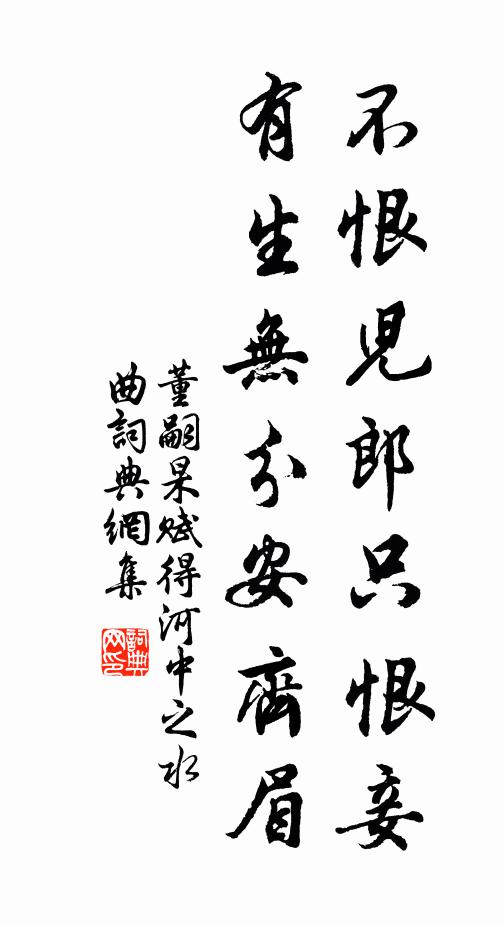 不恨兒郎只恨妾
有生無分安齊眉
董嗣杲賦得河中之水
曲詞典網集
詞典網印